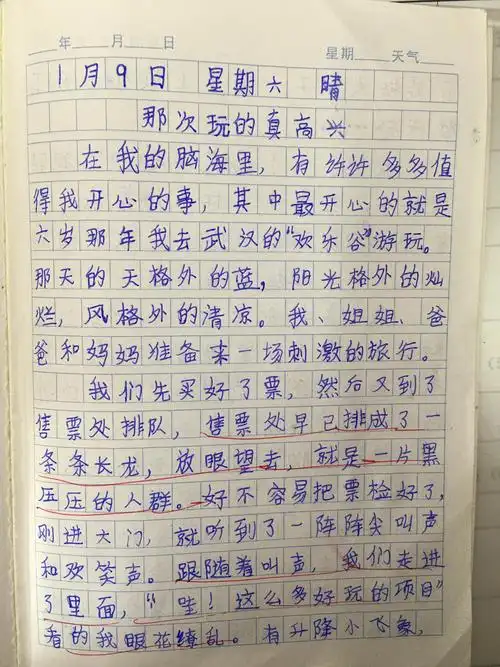 年 月 日 星期 天气
1月9日 星期六 晴
那次玩的真高兴
在我的脑海里,有许许多多值
得我开心的事,其中最开心的就是
六岁那年我去武汉的“欢乐谷”游玩。
那天的天格外的蓝,阳光格外的灿
烂,风格外的清凉。我、姐姐、爸
爸和妈妈准备来一场刺激的旅行。
我们先买好了票,然后又到了
售票处排队,售票处早已排成了一
条条长龙,放眼望去,就是一片黑
压压的人群。好不容易把票检好了,
刚进大门,就听到了一阵阵尖叫声
和欢笑声。跟随着叫声,我们走进
了里面,“哇!这么多好玩的项目”
看的我眼花缭乱。有升降小飞象,